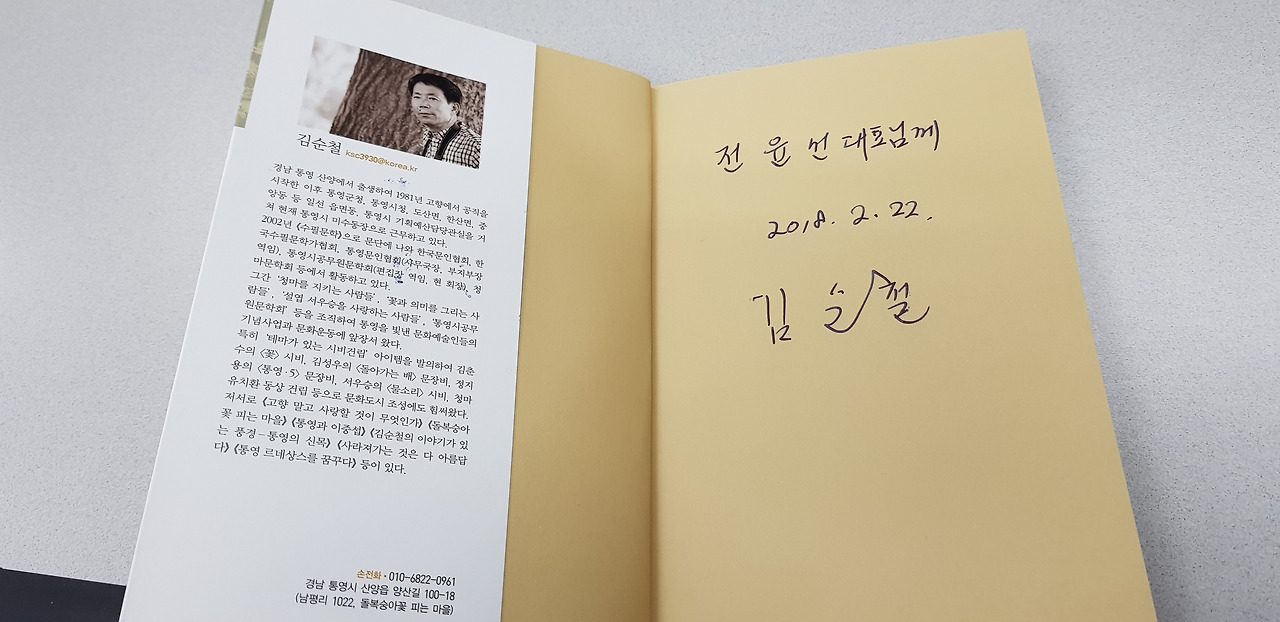 김순철 ksc3930@korea.kr
경남 통영 산양에서 출생하여 1981년 고향에서 공직을
시작한 이후 통영군청, 통영시청, 도산면, 한산면, 중
앙동 등 일선 읍면동, 통영시 기획예산담당관실을 거
쳐 현재 통영시 미수동장으로 근무하고 있다.
2002년 《수필문학》으로 문단에 나와 한국문인협회, 한
국수필문학가협회, 통영문인협회(사무국장, 부지부장
역임), 통영시공무원문학회(편집장 역임, 현 회장), 청
마문학회 등에서 활동하고 있다.
그간 '청마를 지키는 사람들', '꽃과 의미를 그리는 사
람들', '설엽 서우승을 사랑하는 사람들', '통영시공무
원문학회' 등을 조직하여 통영을 빛낸 문화예술인들의
기념사업과 문화운동에 앞장서 왔다.
특히 '테마가 있는 시비건립' 아이템을 발의하여 김춘
수의 〈꽃〉 시비, 김성우의 〈돌아가는 배〉 문장비, 정지
용의 〈통영·5〉 문장비, 서우승의 〈물소리〉 시비, 청마
유치환 동상 건립 등으로 문화도시 조성에도 힘써왔다.
저서로 《고향 말고 사랑할 것이 무엇인가》 《돌복숭아
꽃 피는 마을》 《통영과 이중섭》 《김순철의 이야기가 있
는 풍경-통영의 신목》 《사라져가는 것은 다 아름답
다》 《통영 르네상스를 꿈꾸다》 등이 있다.
손전화·010-6822-0961
경남 통영시 산양읍 양산길 100-18
(남평리 1022, 돌복숭아꽃 피는 마을)
전윤선 대표님께
2018. 2. 22.
김순철